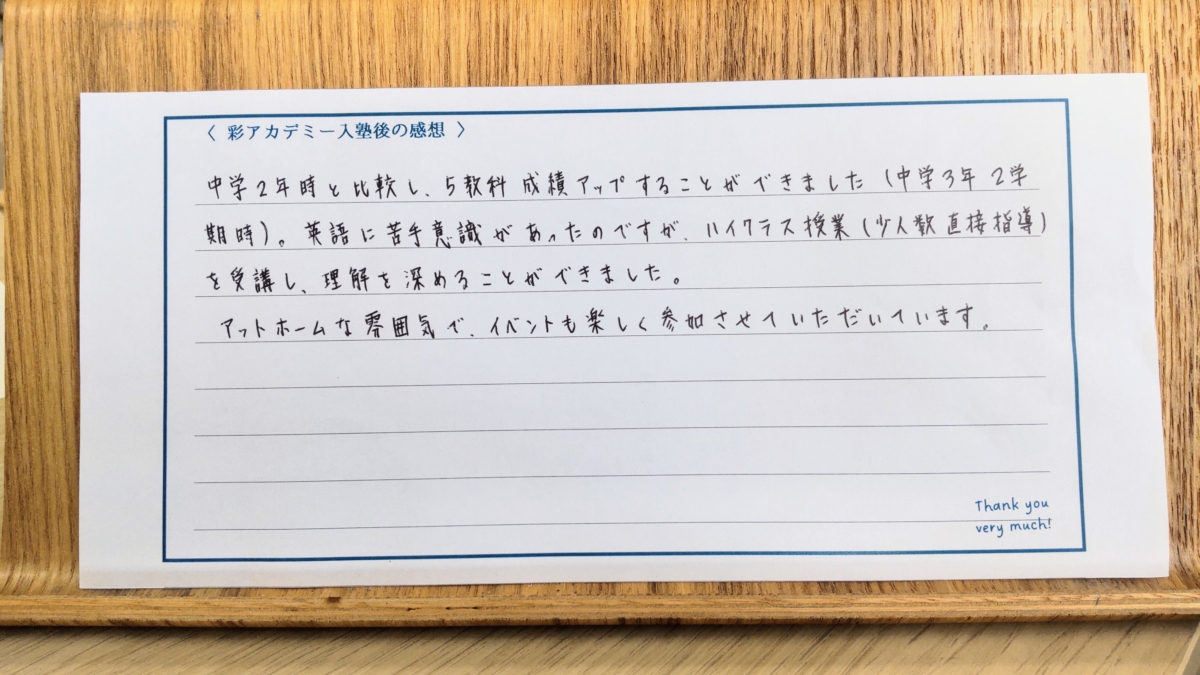 〈 彩アカデミー入塾後の感想 〉
中学2年時と比較し、5教科成績アップすることができました(中学3年 2学
期時)。英語に苦手意識があったのですが、ハイクラス授業(少人数直接指導)
を受講し、理解を深めることができました。
アットホームな雰囲気で、イベントも楽しく参加させていただいています。
Thank you
very much!